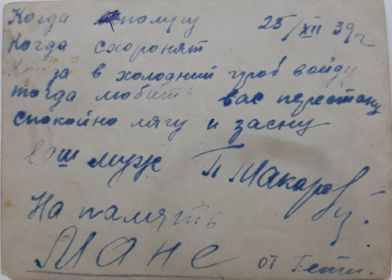 Когда помру 25/XII 39 г
Когда схоронят
Когда в холодний гроб войду
тогда любить вас перестану
спокойно лягу и засну
ваш муж П Макаров
На память
Мане от Пети.